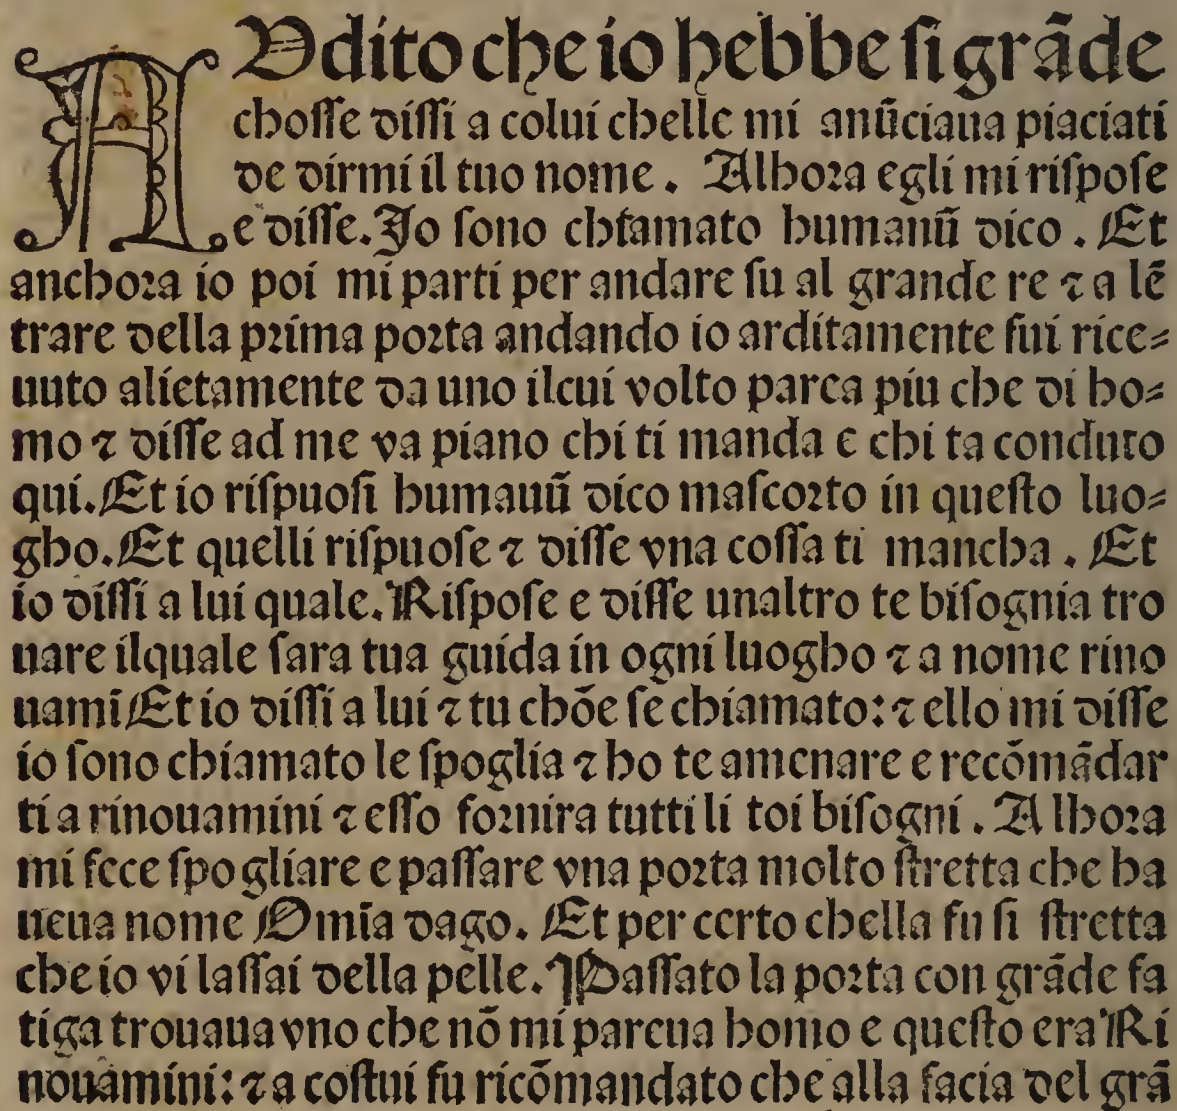 AUdito che io hebbe ſi grãde
choſſe diſſi a colui chelle mi anũciaua piaciati
de dirmi il tuo nome. Alhora egli mi riſpoſe
e diſſe. Io ſono chiamato humanũ dico. Et
anchora io poi mi parti per andare ſu al grande re ⁊ a lẽ
trare della prima porta andando io arditamente fui rice⸗
uuto alietamente da uno ilcui volto parea piu che di ho⸗
mo ⁊ diſſe ad me va piano chi ti manda e chi ta conduto
qui. Et io riſpuoſi humauũ dico maſcorto in queſto luo⸗
gho. Et quelli riſpuoſe ⁊ diſſe vna coſſa ti mancha. Et
io diſſi a lui quale. Riſpoſe e diſſe unaltro te biſognia tro
uare ilquale ſara tua guida in ogni luogho ⁊ a nome rino
uami Et io diſſi a lui ⁊ tu chõe ſe chiamato: ⁊ ello mi diſſe
io ſono chiamato le ſpoglia ⁊ ho te amenare e recõmãdar
ti a rinouamini ⁊ eſſo fornira tutti li toi biſogni. Alhora
mi fece ſpogliare e paſſare vna porta molto ſtretta che ha
ueua nome Omia dago. Et per certo chella fu ſi ſtretta
che io vi laſſai della pelle. Paſſato la porta con grãde fa
tiga trouaua vno che nõ mi pareua homo e queſto era Ri
nouamini: ⁊ a coſtui fu ricõmandato che alla facia del grã